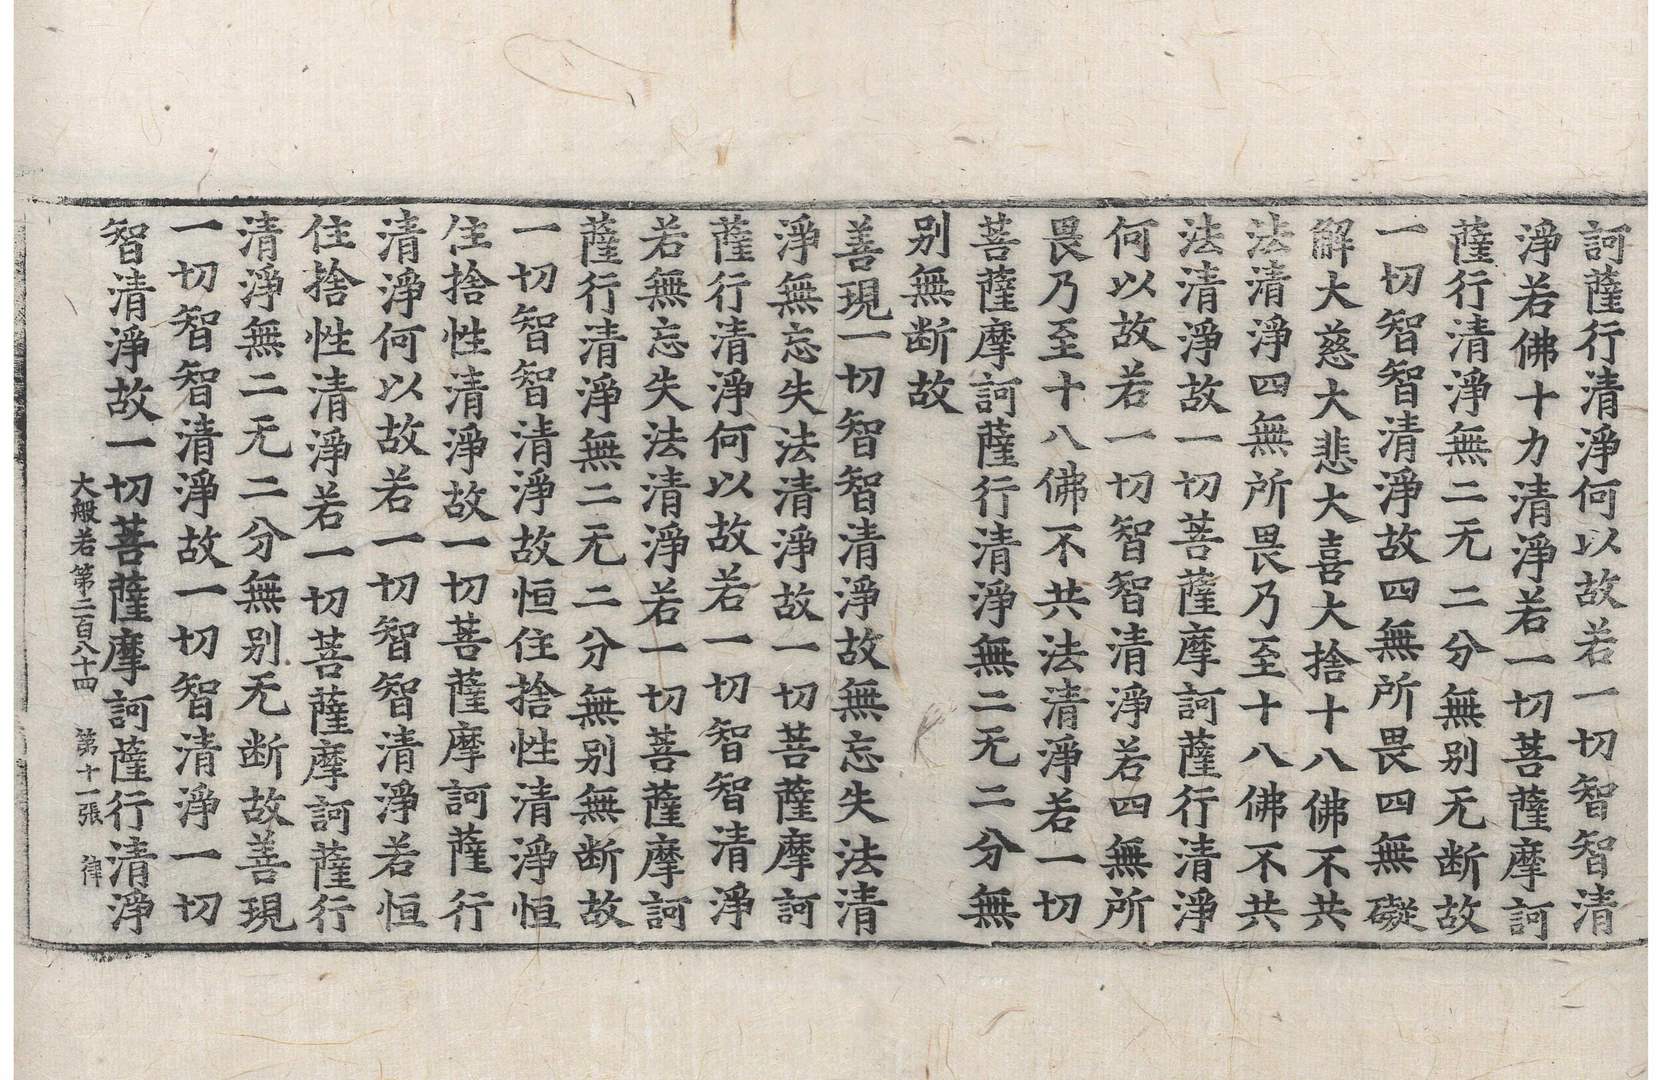 訶薩行清淨何以故若一切智智清
淨若佛十力清淨若一切菩薩摩訶
薩行清淨無二无二分無别无断故
一切智智清淨故四無所畏四無礙
解大慈大悲大喜大捨十八佛不共
法清淨四無所畏乃至十八佛不共
法清淨故一切菩薩摩訶薩行清淨
何以故若一切智智清淨若四無所
畏乃至十八佛不共法清淨若一切
菩薩摩訶薩行清淨無二无二分無
别無断故
善現一切智智清淨故無忘失法清
淨無忘失法清淨故一切菩薩摩訶
薩行清淨何以故若一切智智清淨
若無忘失法清淨若一切菩薩摩訶
薩行清淨無二无二分無别無断故
一切智智清淨故恒住捨性清淨恒
住捨性清淨故一切菩薩摩訶薩行
清淨何以故若一切智智清淨若恒
住捨性清淨若一切菩薩摩訶薩行
清淨無二无二分無别无断故善現
一切智智清淨故一切智清淨一切
智清淨故一切菩薩摩訶薩行清淨
大般若第二百八十四 第十一張 律